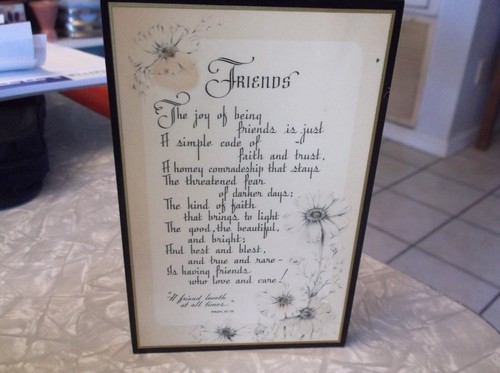 FRIENDS
The joy of being
friends is just
A simple code of
faith and trust,
A homey comradeship that stays
The threatened fear
of darker days;
The kind of faith
that brings to light
The good, the beautiful,
and bright;
And best and blest,
and true and rare -
Is having friends
who love and care!
"A friend loveth
at all times..."